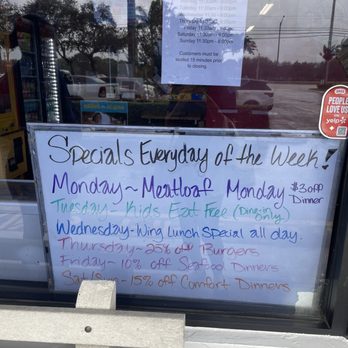 Saturday 11:30am - 8:00pm
Sunday 11:30am - 8:00pm
Customers must be
seated 15 minutes prior
to closing.
PEOPLE
LOVE US
yelp
Specials Everyday of the Week!
Monday~ Meatloaf Monday $3 off Dinner
Tuesday- Kids Eat Free (Dine-in Only)
Wednesday-Wing Lunch Special all day.
Thursday- 25% off Burgers
Friday- 10% off Seafood Dinners
Sat/Sun- 15% off Comfort Dinners